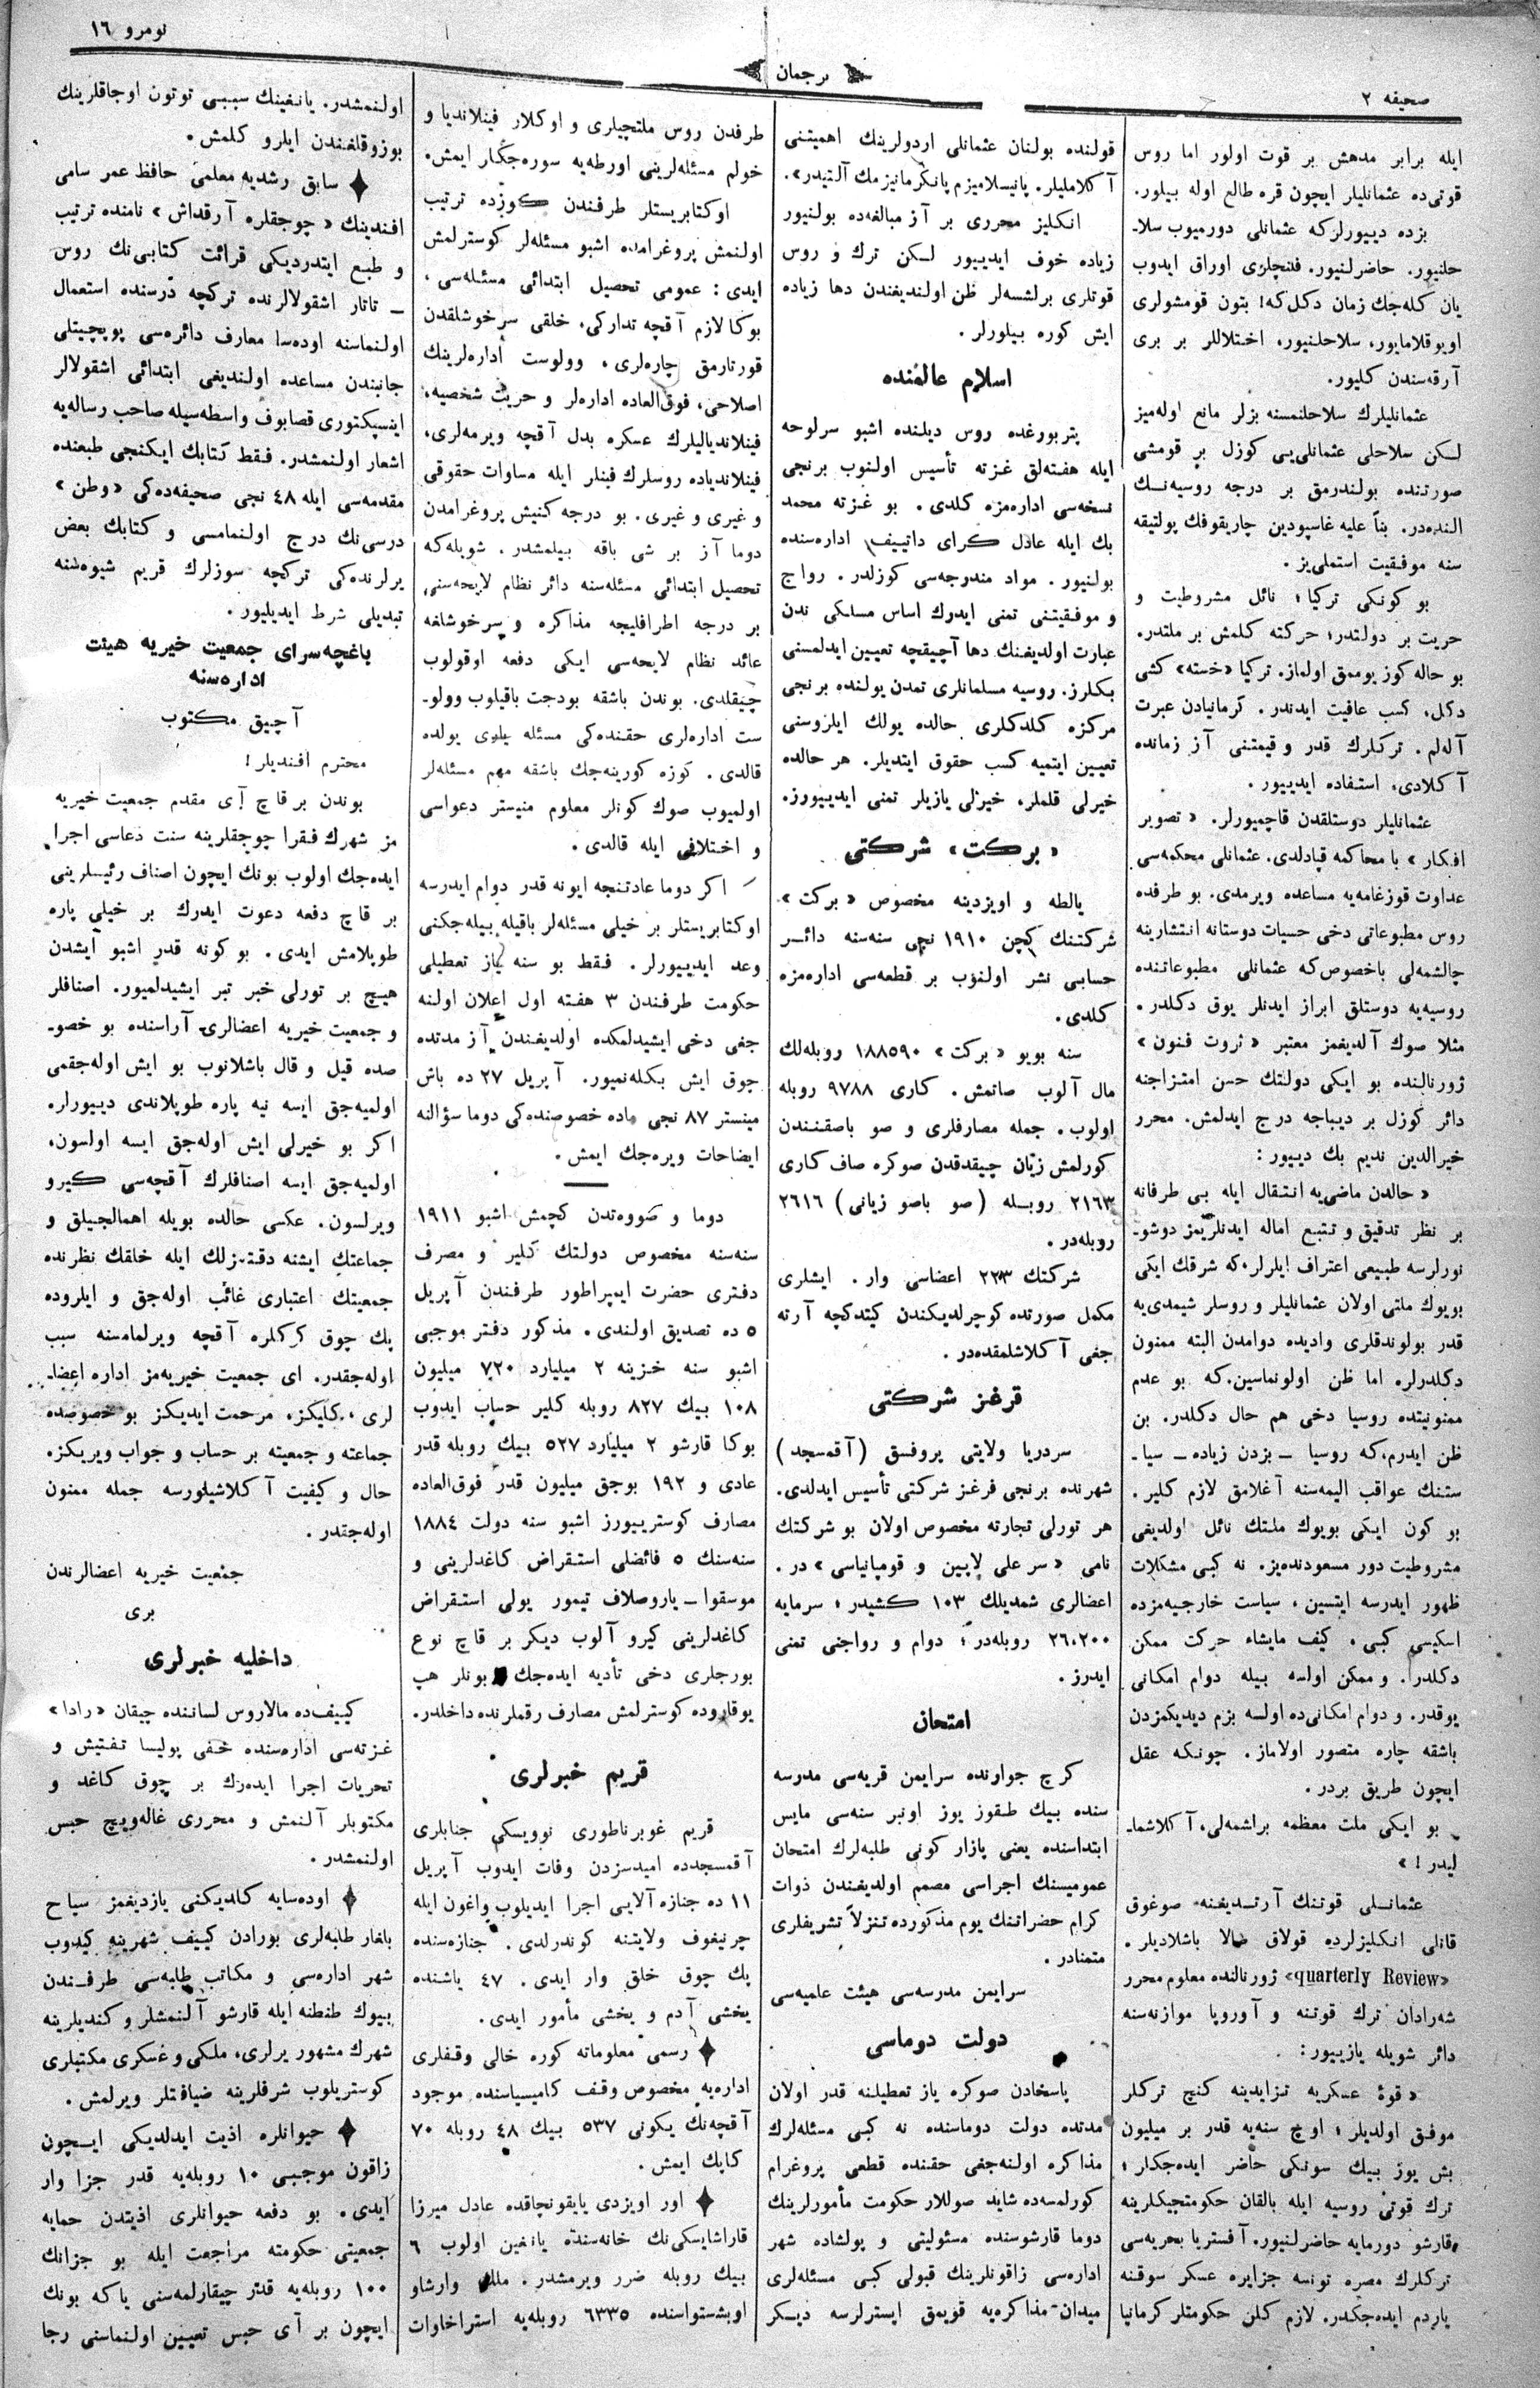 صحیفه ٢
ترجمان
نومرو ١٦
ایله برابر مدهش بر قوت اولور اما روس
قوتی‌ده عثمانلیلر ایچون قره طالع اوله بیلور.
بزده دییورلرکه عثمانلی دورمیوب سلا-
حلنیور. حاضرلنیور. فلنچلری اوراق ایدوب
یان کله‌جك زمان دکل‌که! بتون قومشولری
اویوقلامایور، سلاحلنیور، اختلاللر بر بری
آرقه‌سندن کلیور.
عثمانلیلرك سلاحلنمسنه بزلر مانع اوله‌میز
لکن سلاحلی عثمانلی‌یی کوزل بر قومشی
صورتنده بولندرمق بر درجه روسیه‌نك
النده‌در. بناً علیه غاسپودین چاریقوفك پولتیقه
سنه موفقیت استملی‌یز.
بو کونکی ترکیا؛ نائل مشروطیت و
حریت بر دولتدر؛ حرکته کلمش بر ملتدر.
بو حاله کوز یوممق اولماز. ترکیا «خسته» کشی
دکل، کسب عافیت ایدندر. کرمانیادن عبرت
آله‌لم. ترکلرك قدر و قیمتنی آز زمانده
آکلادی، استفاده ایدییور.
عثمانلیلر دوستلقدن قاچمیورلر. «تصویر
افکار» با محاکمه قپادلدی. عثمانلی محکمه‌سی
عداوت قوزغامه‌یه مساعده ویرمدی. بو طرفده
روس مطبوعاتی دخی حسیات دوستانه انتشارینه
چالشمه‌لی باخصوص‌که عثمانلی مطبوعاتنده
روسیه‌یه دوستلق ابراز ایدنلر یوق دکلدر.
مثلا صوك آلدیغمز معتبر «ثروت فنون»
ژورنالنده بو ایکی دولتك حسن امتزاجنه
دائر کوزل بر دیباجه درج ایدلمش. محرر
خیرالدین ندیم بك دییور:
«حالدن ماضی‌یه انتقال ایله بی طرفانه
بر نظر تدقیق و تتبع اماله ایدنلریمز دوشو-
نورلرسه طبیعی اعتراف ایلرلر، که شرقك ایکی
بویوك ملتی اولان عثمانلیلر و روسلر شیمدی‌یه
قدر بولوندقلری وادیده دوامدن البته ممنون
دکلدرلر، اما ظن اولونماسین، که بو عدم
ممنونیتده روسیا دخی هم حال دکلدر. بن
ظن ایدرم، که روسیا – بزدن زیاده – سیا-
ستنك عواقب الیمه‌سنه آغلامق لازم کلیر.
بو کون ایکی بویوك ملتك نائل اولدیغی
مشروطیت دور مسعودنده‌یز. نه کبی مشکلات
ظهور ایدرسه ایتسین، سیاست خارجیه‌مزده
اسکیسی کبی، کیف مایشاء حرکت ممکن
دکلدر. و ممکن اولسه بیله دوام امکانی
یوقدر. و دوام امکانی‌ده اولسه بزم دیدیکمزدن
باشقه چاره متصور اولاماز. چونکه عقل
ایچون طریق بردر.
بو ایکی ملت معظمه براشمه‌لی، آکلاشما-
لیدر!»
عثمانلی قوتنك آرتدیغنه صوغوق
قانلی انکلیزلرده قولاق صالا باشلادیلر.
«quarterly Review» ژورنالنده معلوم محرر
شه‌رادان ترك قوتنه و آوروپا موازنه‌سنه
دائر شویله یازییور:
«قوهٔ عسکریه تزایدینه کنج ترکلر
موفق اولدیلر؛ اوچ سنه‌یه قدر بر میلیون
بش یوز بیك سونکی حاضر ایده‌جکلر؛
ترك قوتی روسیه ایله بالقان حکومتجیکلرینه
قارشو دورمایه حاضرلنیور. آفستریا بحریه‌سی
ترکلرك مصره تونسه جزایره عسکر سوقنه
یاردم ایده‌جکدر. لازم کلن حکومتلر کرمانیا
قولنده بولنان عثمانلی اردولرینك اهمیتنی
آکلاملیلر. پانیسلامیزم پانکرمانیزمك آلتیدر».
انکلیز محرری بر آز مبالغه‌ده بولنیور
زیاده خوف ایدییور لکن ترك و روس
قوتلری برلشسه‌لر ظن اولندیغندن دها زیاده
ایش کوره بیلورلر.
اسلام عالمنده
پتربورغده روس دیلنده اشبو سرلوحه
ایله هفته‌لق غزته تأسیس اولنوب برنجی
نسخه‌سی اداره‌مزه کلدی. بو غزته محمد
بك ایله عادل کرای داتییف اداره‌سنده
بولنیور. مواد مندرجه‌سی کوزلدر. رواج
و موفقیتنی تمنی ایدرك اساس مسلکی ندن
عبارت اولدیغنك دها آچیقچه تعیین ایدلمسنی
بکلرز. روسیه مسلمانلری تمدن یولنده برنجی
مرکزه کلدکلری حالده یولك ایلروسنی
تعیین ایتمیه کسب حقوق ایتدیلر. هر حالده
خیرلی قلملر، خیرلی یازیلر تمنی ایدییورز.
«برکت» شرکتی
یالطه و اویزدینه مخصوص «برکت»
شرکتنك کچن ١٩١٠ نجی سنه‌سنه دائر
حسابی نشر اولنوب بر قطعه‌سی اداره‌مزه
کلدی.
سنه بویو «برکت» ١٨٨٥٩٠ روبله‌لك
مال آلوب صاتمش. کاری ٩٧٨٨ روبله
اولوب. جمله مصارفلری و صو باصقنندن
کورلمش زیان چیقدقدن صوکره صاف کاری
٢١٦٣ روبله (صو باصو زیانی) ٢٦١٦
روبله‌در.
شرکتك ٢٢٣ اعضاسی وار. ایشلری
مکمل صورتده کوچرلدیکندن کیتدکچه آرته
جغی آکلاشلمقده‌در.
قرغز شرکتی
سردریا ولایتی پروفسق (آقمسجد)
شهرنده برنجی قرغز شرکتی تأسیس ایدلدی.
هر تورلی تجارته مخصوص اولان بو شرکتك
نامی «سر علی لاپین و قومپانیاسی» در.
اعضالری شمدیلك ١٠٣ کشیدر؛ سرمایه
٢٦،٢٠٠ روبله‌در؛ دوام و رواجنی تمنی
ایدرز.
امتحان
کرچ جوارنده سرایمن قریه‌سی مدرسه
سنده بیك طقوز یوز اونبر سنه‌سی مایس
ابتداسنده یعنی پازار کونی طلبه‌لرك امتحان
عمومیسنك اجراسی مصمم اولدیغندن ذوات
کرام حضراتنك یوم مذکورده تنزلاً تشریفلری
متمنادر.
سرایمن مدرسه‌سی هیئت علمیه‌سی
دولت دوماسی
پاسخادن صوکره یاز تعطیلنه قدر اولان
مدتده دولت دوماسنده نه کبی مسئله‌لرك
مذاکره اولنه‌جغی حقنده قطعی پروغرام
کورلمسه‌ده شاید صوللار حکومت مأمورلرینك
دوما قارشوسنده مسئولیتی و پولشاده شهر
اداره‌سی زاقونلرینك قبولی کبی مسئله‌لری
میدان مذاکره‌یه قویمق ایسترلرسه دیکر
طرفدن روس ملتچیلری و اوکلار فینلاندیا و
خولم مسئله‌لرینی اورطه‌یه سوره‌جکلر ایمش.
اوکتابریستلر طرفندن کوزده ترتیب
اولنمش پروغرامده اشبو مسئله‌لر کوسترلمش
ایدی: عمومی تحصیل ابتدائی مسئله‌سی،
بوکا لازم آقچه تدارکی، خلقی سرخوشلقدن
قورتارمق چاره‌لری، وولوست اداره‌لرینك
اصلاحی، فوق‌العاده اداره‌لر و حریت شخصیه،
فینلاندیالیلرك عسکره بدل آقچه ویرمه‌لری،
فینلاندیاده روسلرك فینلر ایله مساوات حقوقی
و غیری و غیری. بو درجه کنیش پروغرامدن
دوما آز بر شی باقه بیلمشدر. شویله‌که
تحصیل ابتدائی مسئله‌سنه دائر نظام لایحه‌سنی،
بر درجه اطرافلیجه مذاکره و سرخوشلغه
عائد نظام لایحه‌سی ایکی دفعه اوقولوب
چیقلدی. بوندن باشقه بودجت باقیلوب وولو-
ست اداره‌لری حقنده‌کی مسئله یاری یولده
قالدی. کوزه کورینه‌جك باشقه مهم مسئله‌لر
اولمیوب صوك کونلر معلوم منیستر دعواسی
و اختلافی ایله قالدی.
اکر دوما عادتنجه ایونه قدر دوام ایدرسه
اوکتابریستلر بر خیلی مسئله‌لر باقیله بیله‌جکنی
وعد ایدییورلر. فقط بو سنه یاز تعطیلی
حکومت طرفندن ٣ هفته اول اعلان اولنه
جغی دخی ایشیدلمکده اولدیغندن آز مدتده
چوق ایش بکله‌نمیور. آپریل ٢٧ ده باش
مینستر ٨٧ نجی ماده خصوصنده‌کی دوما سؤالنه
ایضاحات ویره‌جك ایمش.
دوما و صووه‌تدن کچمش اشبو ١٩١١
سنه‌سنه مخصوص دولتك کلیر و مصرف
دفتری حضرت ایمپراطور طرفندن آپریل
٥ ده تصدیق اولندی. مذکور دفتر موجبی
اشبو سنه خزینه ٢ میلیارد ٧٢٠ میلیون
١٠٨ بیك ٨٢٧ روبله کلیر حساب ایدوب
بوکا قارشو ٢ میلیارد ٥٢٧ بیك روبله قدر
عادی و ١٩٢ بوچق میلیون قدر فوق‌العاده
مصارف کوسترییورز اشبو سنه دولت ١٨٨٤
سنه‌سنك ٥ فائضلی استقراض کاغدلرینی و
موسقوا – یاروصلاف تیمور یولی استقراض
کاغدلرینی کیرو آلوب دیکر بر قاچ نوع
بورجلری دخی تأدیه ایده‌جك بونلر هپ
یوقاروده کوسترلمش مصارف رقملرنده داخلدر.
قریم خبرلری
قریم غوبرناطوری نوویسکی جنابلری
آقمسجدده امیدسزدن وفات ایدوب آپریل
١١ ده جنازه آلایی اجرا ایدیلوب واغون ایله
چرنیغوف ولایتنه کوندرلدی. جنازه‌سنده
پك چوق خلق وار ایدی. ٤٧ یاشنده
یخشی آدم و یخشی مأمور ایدی.
رسمی معلوماته کوره خالی وقفلری
اداره‌یه مخصوص وقف کامیسیاسنده موجود
آقچه‌نك یکونی ٥٣٧ بیك ٤٨ روبله ٧٠
کاپك ایمش.
اور اویزدی یایقونچاقده عادل میرزا
قاراشایسکی‌نك خانه‌سنده یانغین اولوب ٦
بیك روبله ضرر ویرمشدر. ملك وارشاو
اوبشتواسنده ٦٣٣٥ روبله‌یه استراخاوات
اولنمشدر. یانغینك سببی توتون اوجاقلرینك
بوزوقلغندن ایلرو کلمش.
سابق رشدیه معلمی حافظ عمر سامی
افندینك «چوجقلره آرقداش» نامنده ترتیب
و طبع ایتدردیکی قرائت کتابی‌نك روس
– تاتار اشقولالرنده ترکچه درسنده استعمال
اولنماسنه اوده‌سا معارف دائره‌سی پوپچیتلی
جانبندن مساعده اولندیغی ابتدائی اشقولالر
اینسپکتوری قصابوف واسطه‌سیله صاحب رساله‌یه
اشعار اولنمشدر. فقط کتابك ایکنجی طبعنده
مقدمه‌سی ایله ٤٨ نجی صحیفه‌ده‌کی «وطن»
درسی‌نك درج اولنمامسی و کتابك بعض
یرلرنده‌کی ترکچه سوزلرك قریم شیوه‌سنه
تبدیلی شرط ایدیلیور.
باغچه‌سرای جمعیت خیریه هیئت
اداره‌سنه
آچیق مکتوب
محترم افندیلر!
بوندن بر قاچ آی مقدم جمعیت خیریه
مز شهرك فقرا چوجقلرینه سنت دعاسی اجرا
ایده‌جك اولوب بونك ایچون اصناف رئیسلرینی
بر قاچ دفعه دعوت ایدرك بر خیلی پاره
طوپلامش ایدی. بو کونه قدر اشبو ایشدن
هیچ بر تورلی خبر تبر ایشیدلمیور. اصنافلر
و جمعیت خیریه اعضالری آراسنده بو خصو-
صده قیل و قال باشلانوب بو ایش اوله‌جقمی
اولمیه‌جق ایسه نیه پاره طوپلاندی دییورلر.
اکر بو خیرلی ایش اوله‌جق ایسه اولسون،
اولمیه‌جق ایسه اصنافلرك آقچه‌سی کیرو
ویرلسون. عکسی حالده بویله اهمالجیلق و
جماعتك ایشنه دقتسزلك ایله خلقك نظرنده
جمعیتك اعتباری غائب اوله‌جق و ایلروده
پك چوق کرکلره آقچه ویرلمامسنه سبب
اوله‌جقدر. ای جمعیت خیریه‌مز اداره اعضا-
لری، کلیکز، مرحمت ایدیکز بو خصوصده
جماعته و جمعیته بر حساب و جواب ویریکز.
حال و کیفیت آکلاشیلورسه جمله ممنون
اوله‌جقدر.
جمعیت خیریه اعضالرندن
بری
داخلیه خبرلری
کییف‌ده مالاروس لساننده چیقان «رادا»
غزته‌سی اداره‌سنده خفی پولیسا تفتیش و
تحریات اجرا ایده‌رك بر چوق کاغد و
مکتوبلر آلنمش و محرری غاله‌ویچ حبس
اولنمشدر.
اوده‌سایه کلدیکنی یازدیغمز سیاح
بلغار طلبه‌لری بورادن کییف شهرینه کیدوب
شهر اداره‌سی و مکاتب طلبه‌سی طرفندن
بیوك طنطنه ایله قارشو آلنمشلر و کندیلرینه
شهرك مشهور یرلری، ملکی و عسکری مکتبلری
کوستریلوب شرفلرینه ضیافتلر ویرلمش.
حیوانلره اذیت ایدلدیکی ایچون
زاقون موجبی ١٠ روبله‌یه قدر جزا وار
ایدی. بو دفعه حیوانلری اذیتدن حمایه
جمعیتی حکومته مراجعت ایله بو جزانك
١٠٠ روبله‌یه قدر چیقارلمه‌سنی یاکه بونك
ایچون بر آی حبس تعیین اولنماسنی رجا